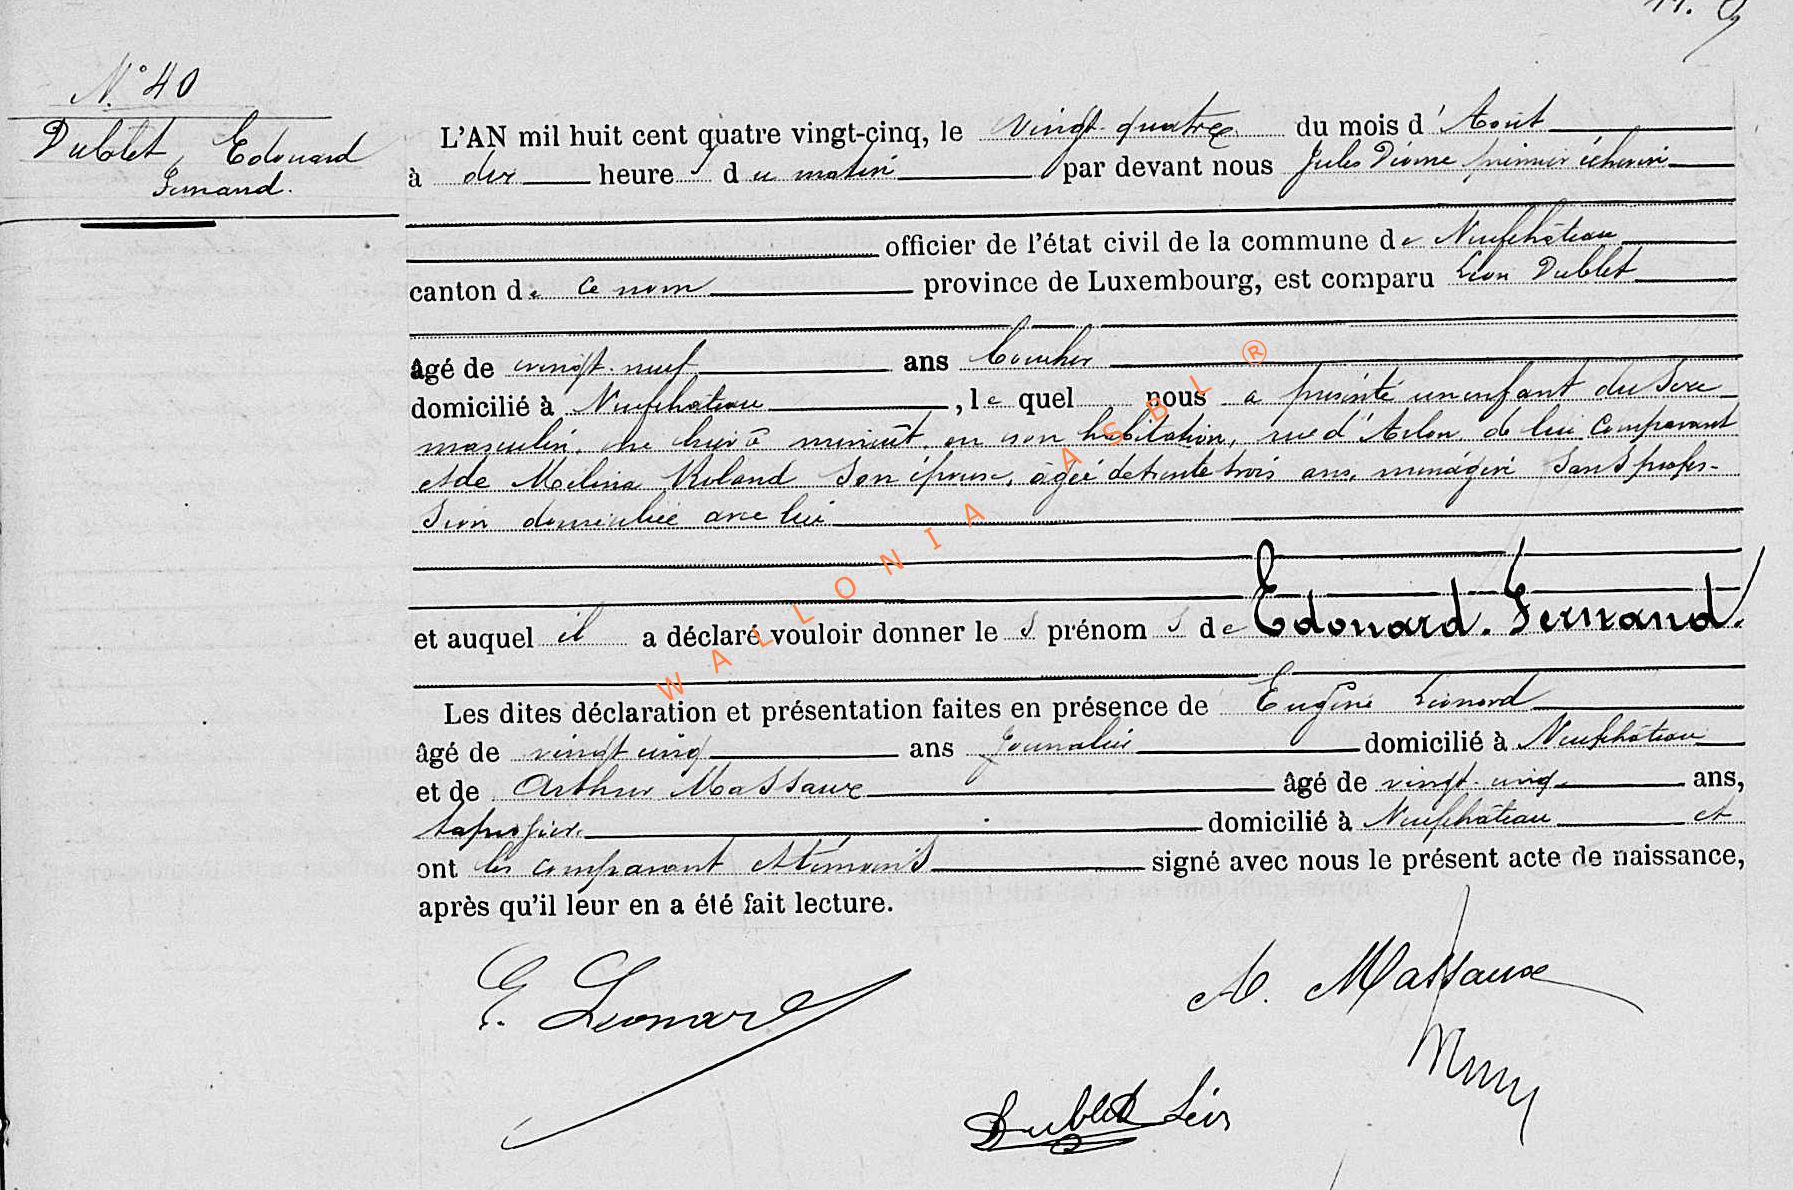 N° 40
Dublet, Edouard
Fernand.
L'AN mil huit cent quatre vingt-cinq, le vingt-quatre du mois d'Aout
à dix heures du matin par devant nous Jules premier échevin
officier de l'état civil de la commune de Neufchâteau
canton de ce nom province de Luxembourg, est comparu Léon Dublet
âgé de vingt-neuf ans boucher
domicilié à Neufchâteau, le quel nous a présenté un enfant du sexe
masculin, né hier à minuit en son habitation, rue d'Arlon, de lui comparant
et de Mélina Roland son épouse, âgée de trente trois ans, ménagère sans profes-
sion domiciliée avec lui
et auquel il a déclaré vouloir donner les prénoms de Edouard. Fernand.
Les dites déclaration et présentation faites en présence de Eugène Léonard
âgé de vingt cinq ans journalier domicilié à Neufchâteau
et de Arthur Massaux âgé de vingt-cinq ans,
tapissier domicilié à Neufchâteau et
ont les comparant et témoins signé avec nous le présent acte de naissance,
après qu'il leur en a été fait lecture.
E. Leonard
A. Massaux
Dublet Léon
WALLONIA ASBL ®